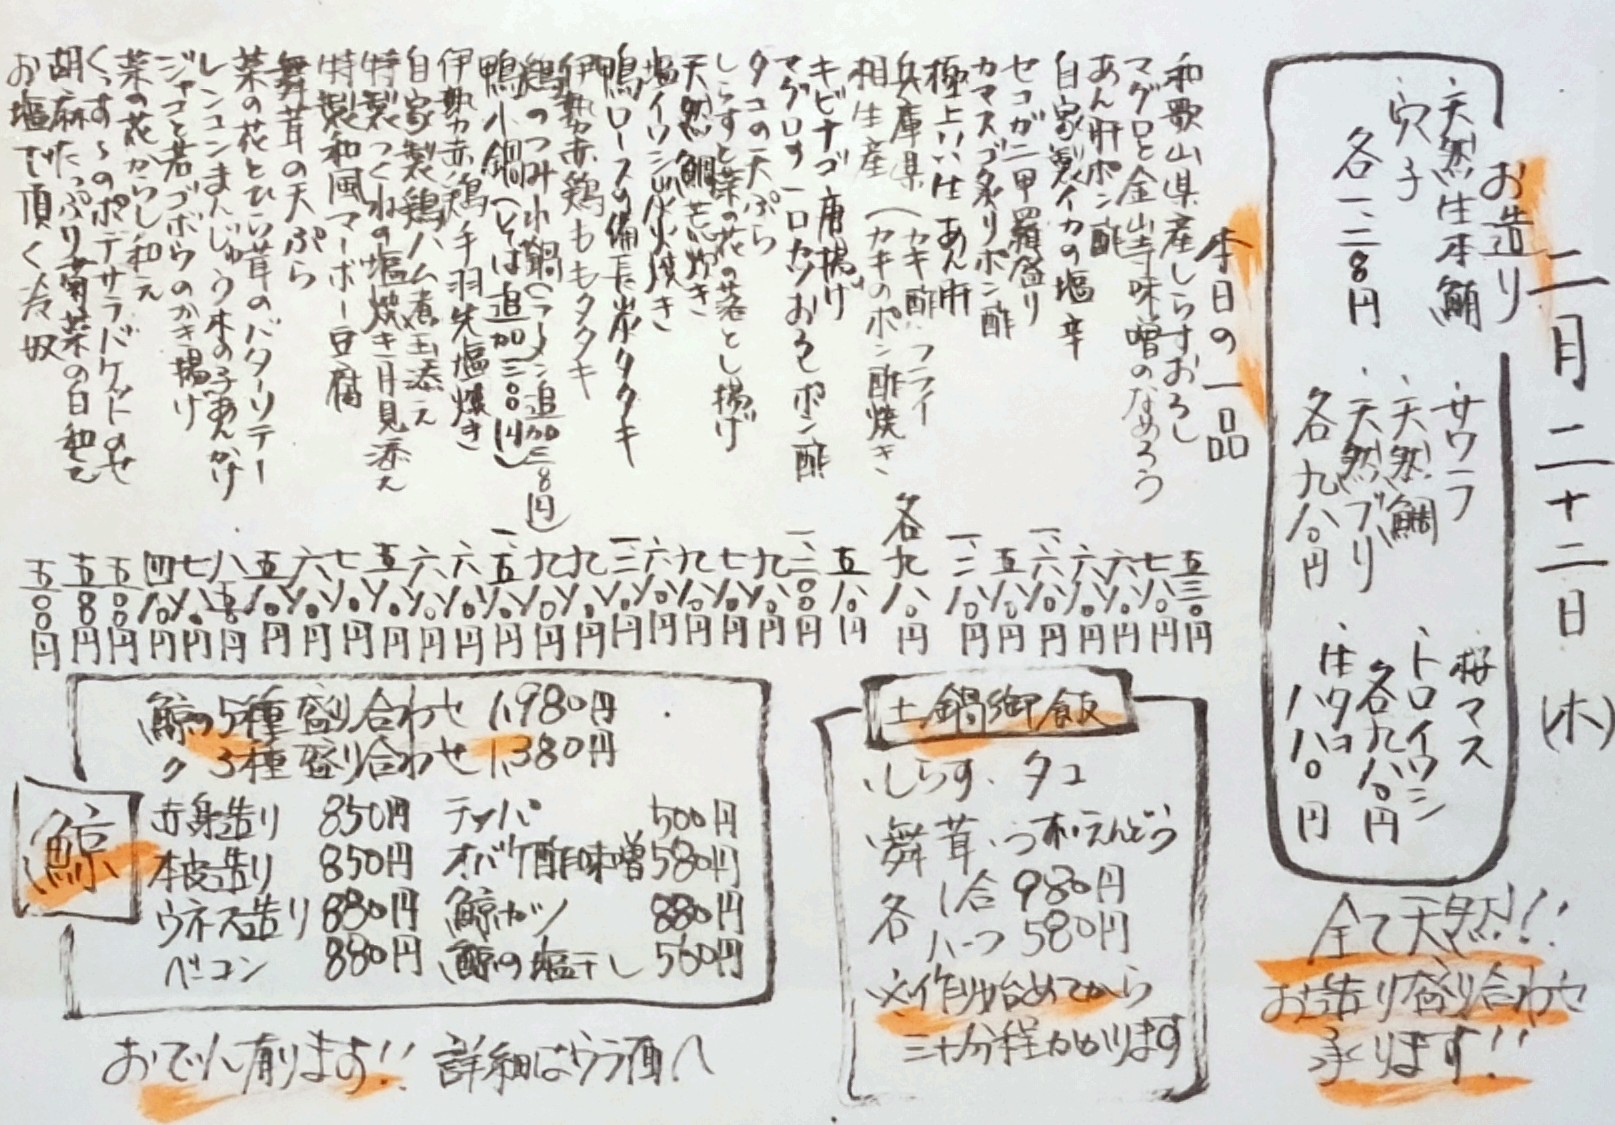 二月二十二日(木)
お造り
・天然生本鮪
・穴子
各一、二八〇円
・サワラ
・天然鯛
・天然ブリ
各九八〇円
・桜マス
・トロイワシ
各九八〇円
・生タコ
八八〇円
全て天然!!
お造り盛り合わせ
承ります!!
本日の一品
和歌山県産しらすおろし 五三〇円
マグロと金山寺味噌のなめろう 七八〇円
あん肝ポン酢 六八〇円
自家製イカの塩辛 六八〇円
セコガニ甲羅盛り 一、六八〇円
カマスゴ炙りポン酢 五八〇円
極上いい生あん肝 一、二八〇円
兵庫県相生産(カキ酢・フライ カキのポン酢焼き 各九八〇円
キビナゴ唐揚げ 五八〇円
マグロの一口カツおろしポン酢 一、二〇〇円
タコの天ぷら 九八〇円
しらすと菜の花の落とし揚げ 七八〇円
天然鯛荒炊き 九八〇円
塩イワシ炭火焼き 六八〇円
鴨ロースの備長炭タタキ 一、三八〇円
伊勢赤鶏ももタタキ 九八〇円
鶏のつみれ小鍋(ラーメン追加三八〇円) 九八〇円
鴨小鍋(そば追加三〇〇円) 一、五八〇円
伊勢赤鶏手羽先塩焼き 六八〇円
自家製鶏ハム煮玉添え 六八〇円
特製つくねの塩焼き月見添え 五八〇円
特製和風マーボー豆腐 七八〇円
舞茸の天ぷら 六八〇円
菜の花とひら茸のバターソテー 五八〇円
レンコンまんじゅう木の子あんかけ 八五〇円
ジャコと若ゴボウのかき揚げ 七八〇円
菜の花からし和え 四八〇円
くんすへのポテサラバケットのせ 五〇〇円
胡麻たっぷり菊菜の白和え 五五〇円
お塩で頂く冷奴 五〇〇円
土鍋御飯
・しらす・タコ
・舞茸・うすいえんどう
各 1合 980円
ハーフ 580円
※作り始めてから
三十分程かかります
鯨
鯨の5種盛り合わせ 1,980円
〃 3種盛り合わせ 1,380円
赤身造り 850円 テッパ 500円
本皮造り 850円 オバケ酢味噌 580円
ウネス造り 880円 鯨カツ 880円
ベーコン 880円 鯨の塩干し 560円
おでん有ります!! 詳細はウラ面へ